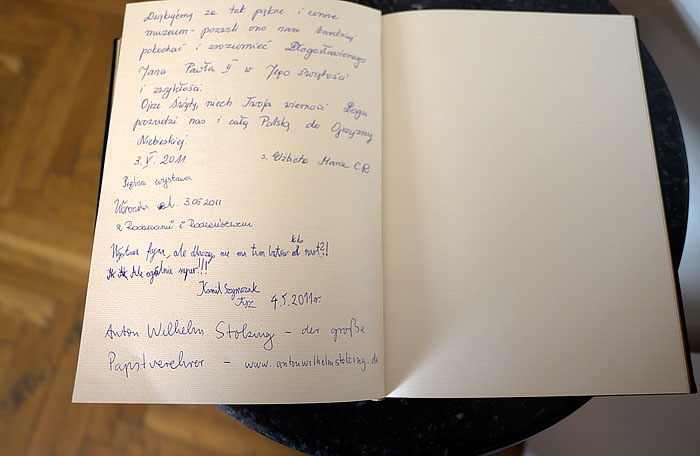 Dziękujemy za tak piękne i cenne
muzeum - pozwoli ono nam bardziej
pokochać i zrozumieć Błogosławionego
Jana Pawła II w Jego świętości
i zwykłości.
Ojcze Święty, niech Twoja wierność Bogu
prowadzi nas i całą Polskę do Ojczyzny
Niebieskiej.
3. V. 2011 s. Elżbieta Maria CR
Piękna wystawa
Weronika 3.05.2011
z Rodzicami i Rodzeństwem
Wystawa fajna, ale dlaczego nie ma tam butów do nart?!
Ale ogólnie super!!!
Kamil Szymczak
4.5.2011r.
Anton Wilhelm Stolzing - der große
Papstverehrer - www.antonwilhelmstolzing.de